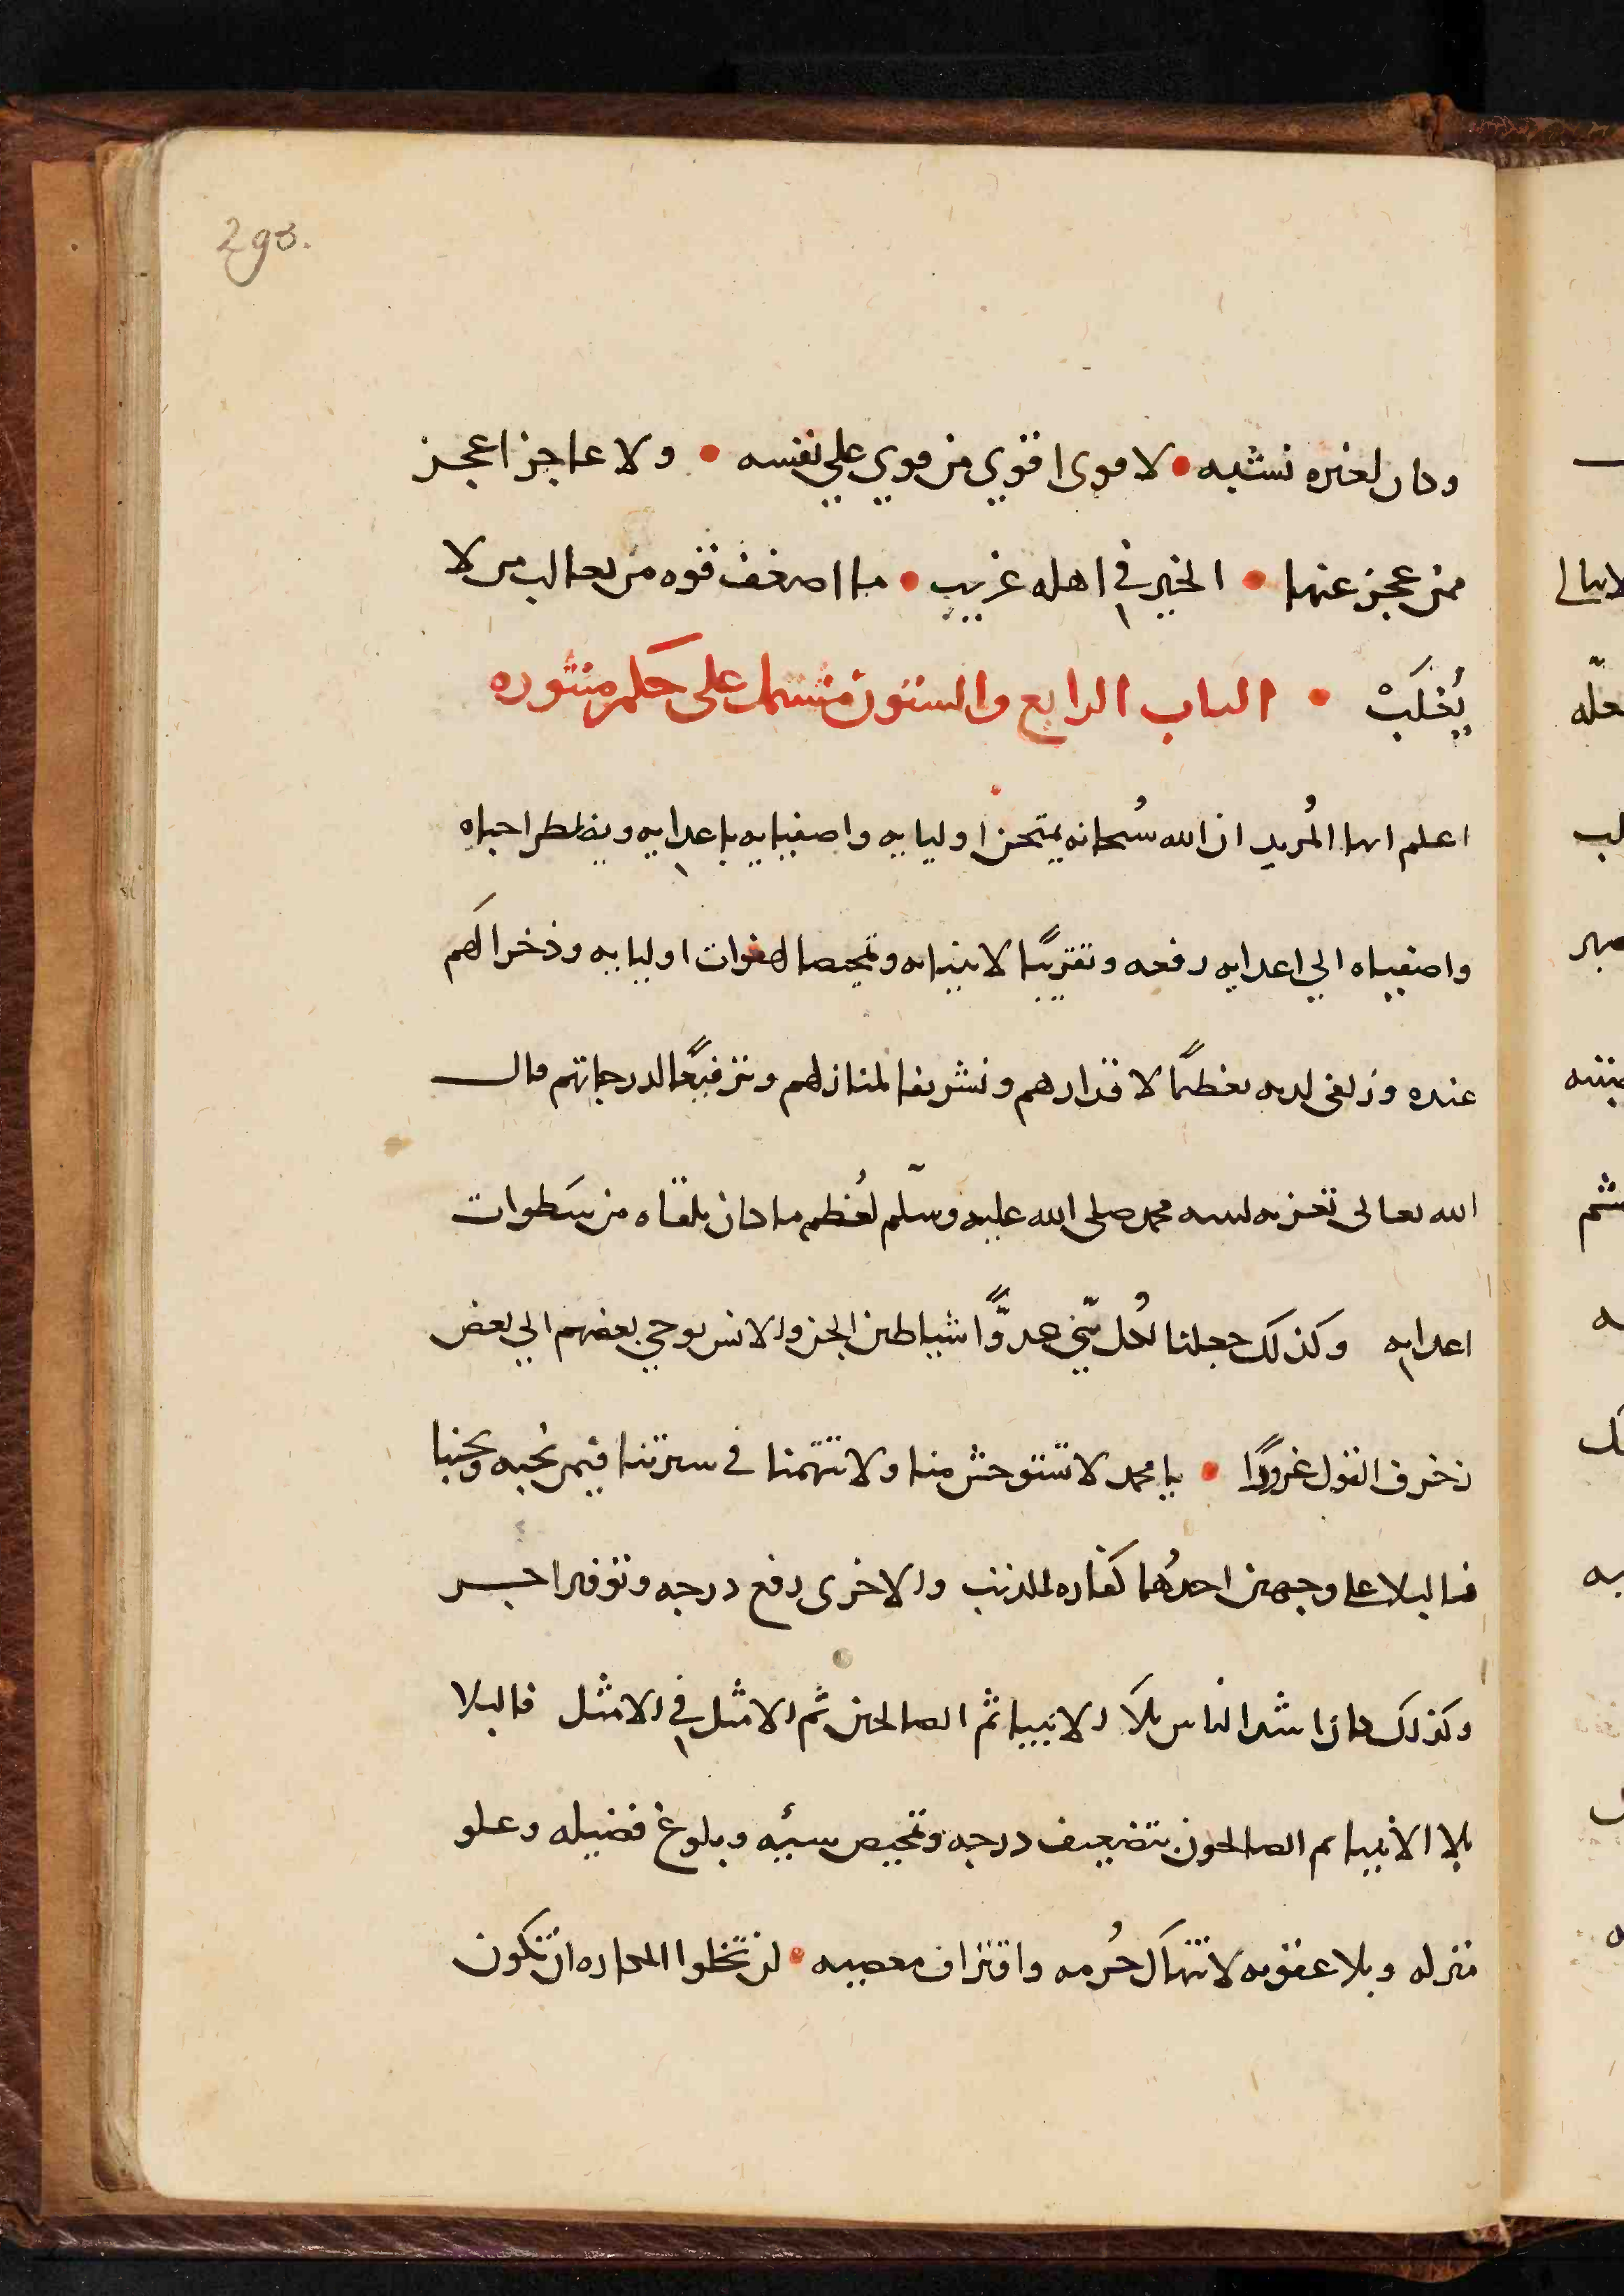 293.
وكان لغيره نسبه • لا قوى اقوي من قوي علي نفسه • ولا عاجز اعجز
ممن عجز عنها • الخير في اهله غريب • ما اضعف قوه من يغالب من لا
يُغلَبْ • الباب الرابع والستون مشتمل على حكم منثوره
اعلم ايها المُريد ان الله سُبحانه يمتحن اوليايه واصفيايه باعدايه ويضطر احباه
واصفياه الي اعدايه رفعه وتقريبًا لانبيايه وتمحيصا لهفوات اوليايه وذخرا لهم
عنده وزلفى لديه تعظيمًا لاقدارهم وتشريفا لمنازلهم وترفيعًا لدرجاتهم قال
الله تعالى تعزيه لنبيه محمد صلى الله عليه وسلّم لعُظم ما كان يلقاه من سَطوات
اعدايه وكذلك جعلنا لكُل نبّي عدوًّا شياطين الجن والانس يوحي بعضهم الي بعض
زخرف القول غرورًا • يا محمد لا تستوحش منا ولا تتهمنا في سيرتنا فيمن نُحبه ويحبنا
فالبلا على وجهين احدهُما كفاره للذنب والاخرى رفع درجه وتوفير اجر
وكذلك كان اشد الناس بلآ الانبيا ثم الصالحين ثم الامثل في الامثل فالبلا
بلا الانبيا ثم الصالحون بتضعيف درجه وتمحيص سيئه وبلوغ فضيله وعلو
منزله وبلا عقوبه لانتهاك حُرمه واقتراف معصيه • لن تخلوا المكاره ان تكون
لاىىالى